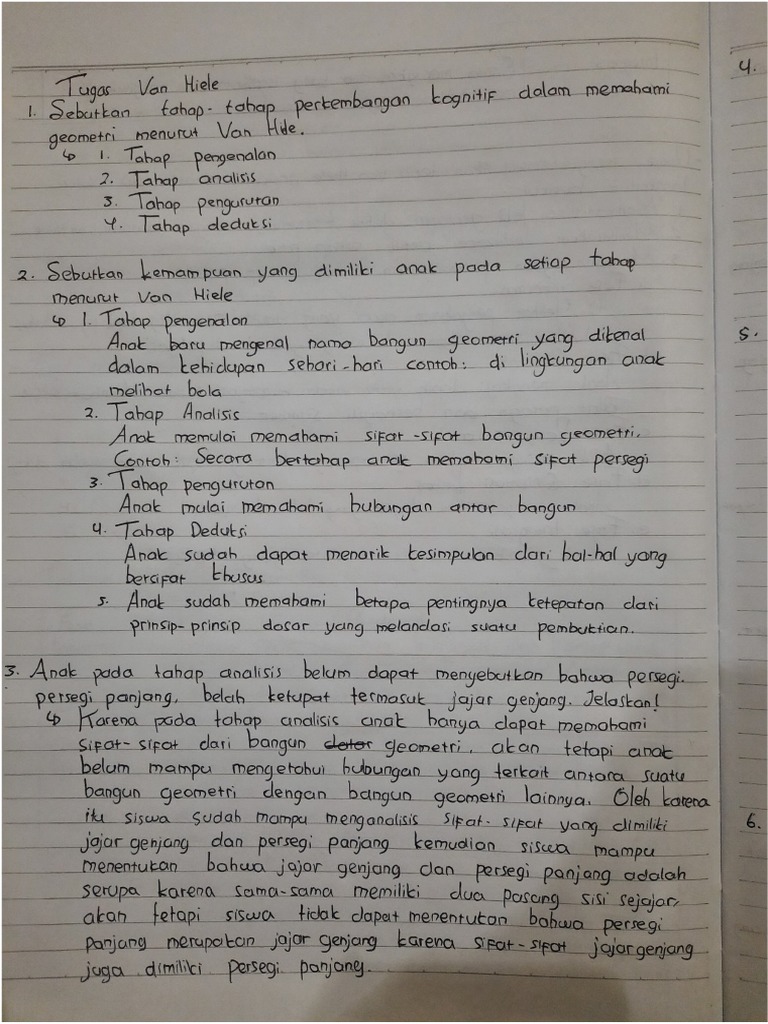 Tugas Van Hiele
1. Sebutkan tahap-tahap perkembangan kognitif dalam memahami
geometri menurut Van Hile.
↳ 1. Tahap pengenalan
2. Tahap analisis
3. Tahap pengurutan
4. Tahap deduksi
2. Sebutkan kemampuan yang dimiliki anak pada setiap tahap
menurut Van Hiele
↳ 1. Tahap pengenalan
Anak baru mengenal nama bangun geometri yang dikenal
dalam kehidupan sehari-hari contoh: di lingkungan anak
melihat bola
2. Tahap Analisis
Anak memulai memahami sifat-sifat bangun geometri.
Contoh: Secara bertahap anak memahami sifat persegi
3. Tahap pengurutan
Anak mulai memahami hubungan antar bangun
4. Tahap Deduksi
Anak sudah dapat menarik kesimpulan dari hal-hal yang
bersifat khusus
5. Anak sudah memahami betapa pentingnya ketepatan dari
prinsip-prinsip dasar yang melandasi suatu pembuktian.
3. Anak pada tahap analisis belum dapat menyebutkan bahwa persegi.
persegi panjang, belah ketupat termasuk jajar genjang. Jelaskan!
↳ Karena pada tahap analisis anak hanya dapat memahami
sifat-sifat dari bangun datar geometri, akan tetapi anak
belum mampu mengetahui hubungan yang terkait antara suatu
bangun geometri dengan bangun geometri lainnya. Oleh karena
itu siswa sudah mampu menganalisis sifat-sifat yang dimiliki
jajar genjang dan persegi panjang kemudian siswa mampu
menentukan bahwa jajar genjang dan persegi panjang adalah
serupa karena sama-sama memiliki dua pasang sisi sejajar,
akan tetapi siswa tidak dapat menentukan bahwa persegi
panjang merupakan jajar genjang karena sifat-sifat jajar genjang
juga dimiliki persegi panjang.
4.
5.
6.